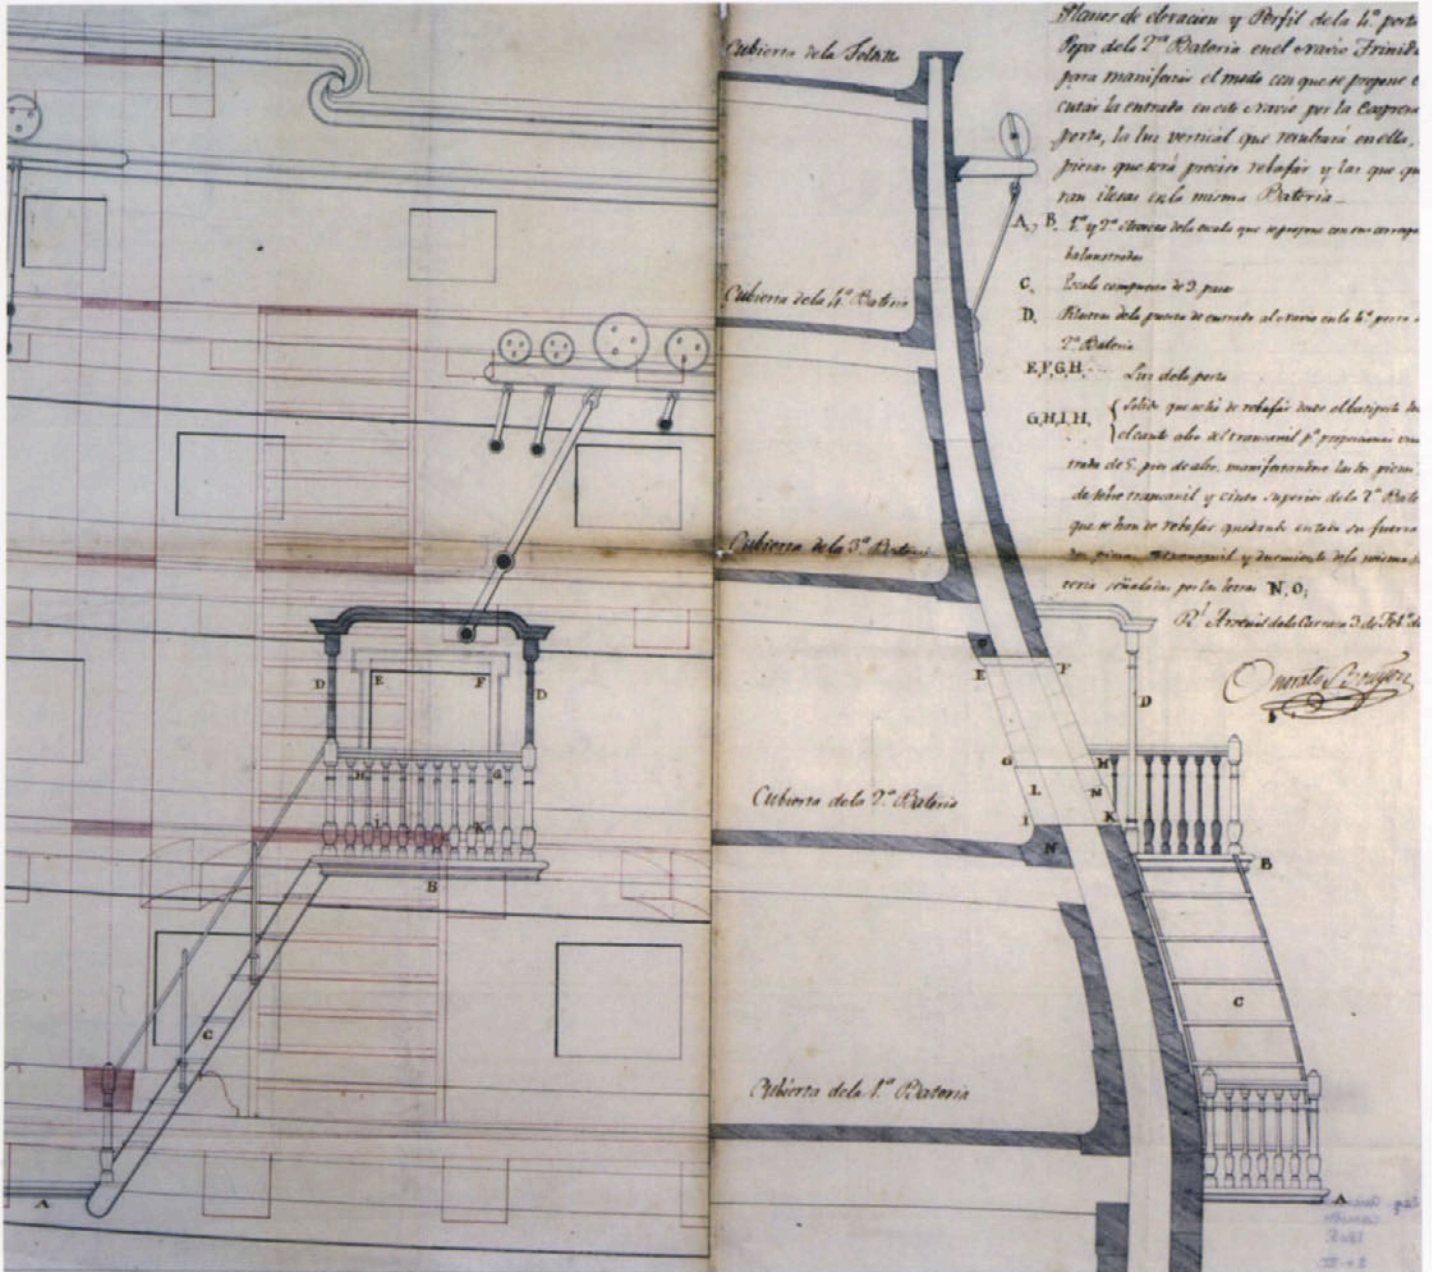 Planos de elevacion y Perfil de la 4.ª porta
Popa de la 2.ª Bateria en el navio Trinid
para manifestar el modo con que se propone e
cutar la entrada en este navio por la expresa
porta, la luz vertical que resultará en ella,
piezas que será preciso rebajar y las que qu
ran ilesas en la misma Bateria
A, B. 1.ª y 2.ª mesetas de la escala que se propone con sus
balaustradas
C. Escala compuesta de 9. pasos
D. Pilastras de la puerta de entrada al navio en la 4.ª porta
2.ª Bateria
E,F,G,H. Luz de la porta
G,H,I,K. Solido que se há de rebajar desde el batiporte
el canto alto del trancanil p.ª proporcionar
trada de 5. pies de alto, manifestandose las tres piezas
de sobre trancanil y cinta superior de la 2.ª Bate
que se han de rebajar quedando en toda su fuerza
trancanil y durmiente de la misma
teria señaladas por las letras N, O,
R.l Arsenal de la Carraca 3 de Feb.º de
Honorato Bouyon
Cubierta de la Toldilla
Cubierta de la 4.ª Bateria
Cubierta de la 3.ª Bateria
Cubierta de la 2.ª Bateria
Cubierta de la 1.ª Bateria
D E F D
H G
I K
B
C
A
O
E F
D
G H
L M
I K
N
B
C
A